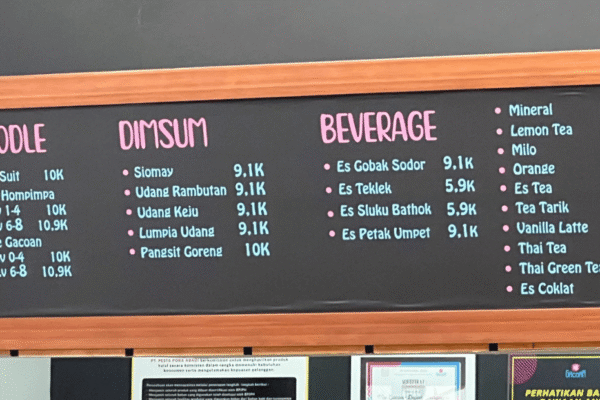 ODLE
Suit 10K
Hompimpa
1-4 10K
6-8 10.9K
Gacoan
0-4 10K
6-8 10.9K
DIMSUM
• Siomay 9.1K
• Udang Rambutan 9.1K
• Udang Keju 9.1K
• Lumpia Udang 9.1K
• Pangsit Goreng 10K
BEVERAGE
• Es Gobak Sodor 9.1K
• Es Teklek 5.9K
• Es Sluku Bathok 5.9K
• Es Petak Umpet 9.1K
• Mineral
• Lemon Tea
• Milo
• Orange
• Es Tea
• Tea Tarik
• Vanilla Latte
• Thai Tea
• Thai Green Te
• Es Coklat
PERHATIKAN BA